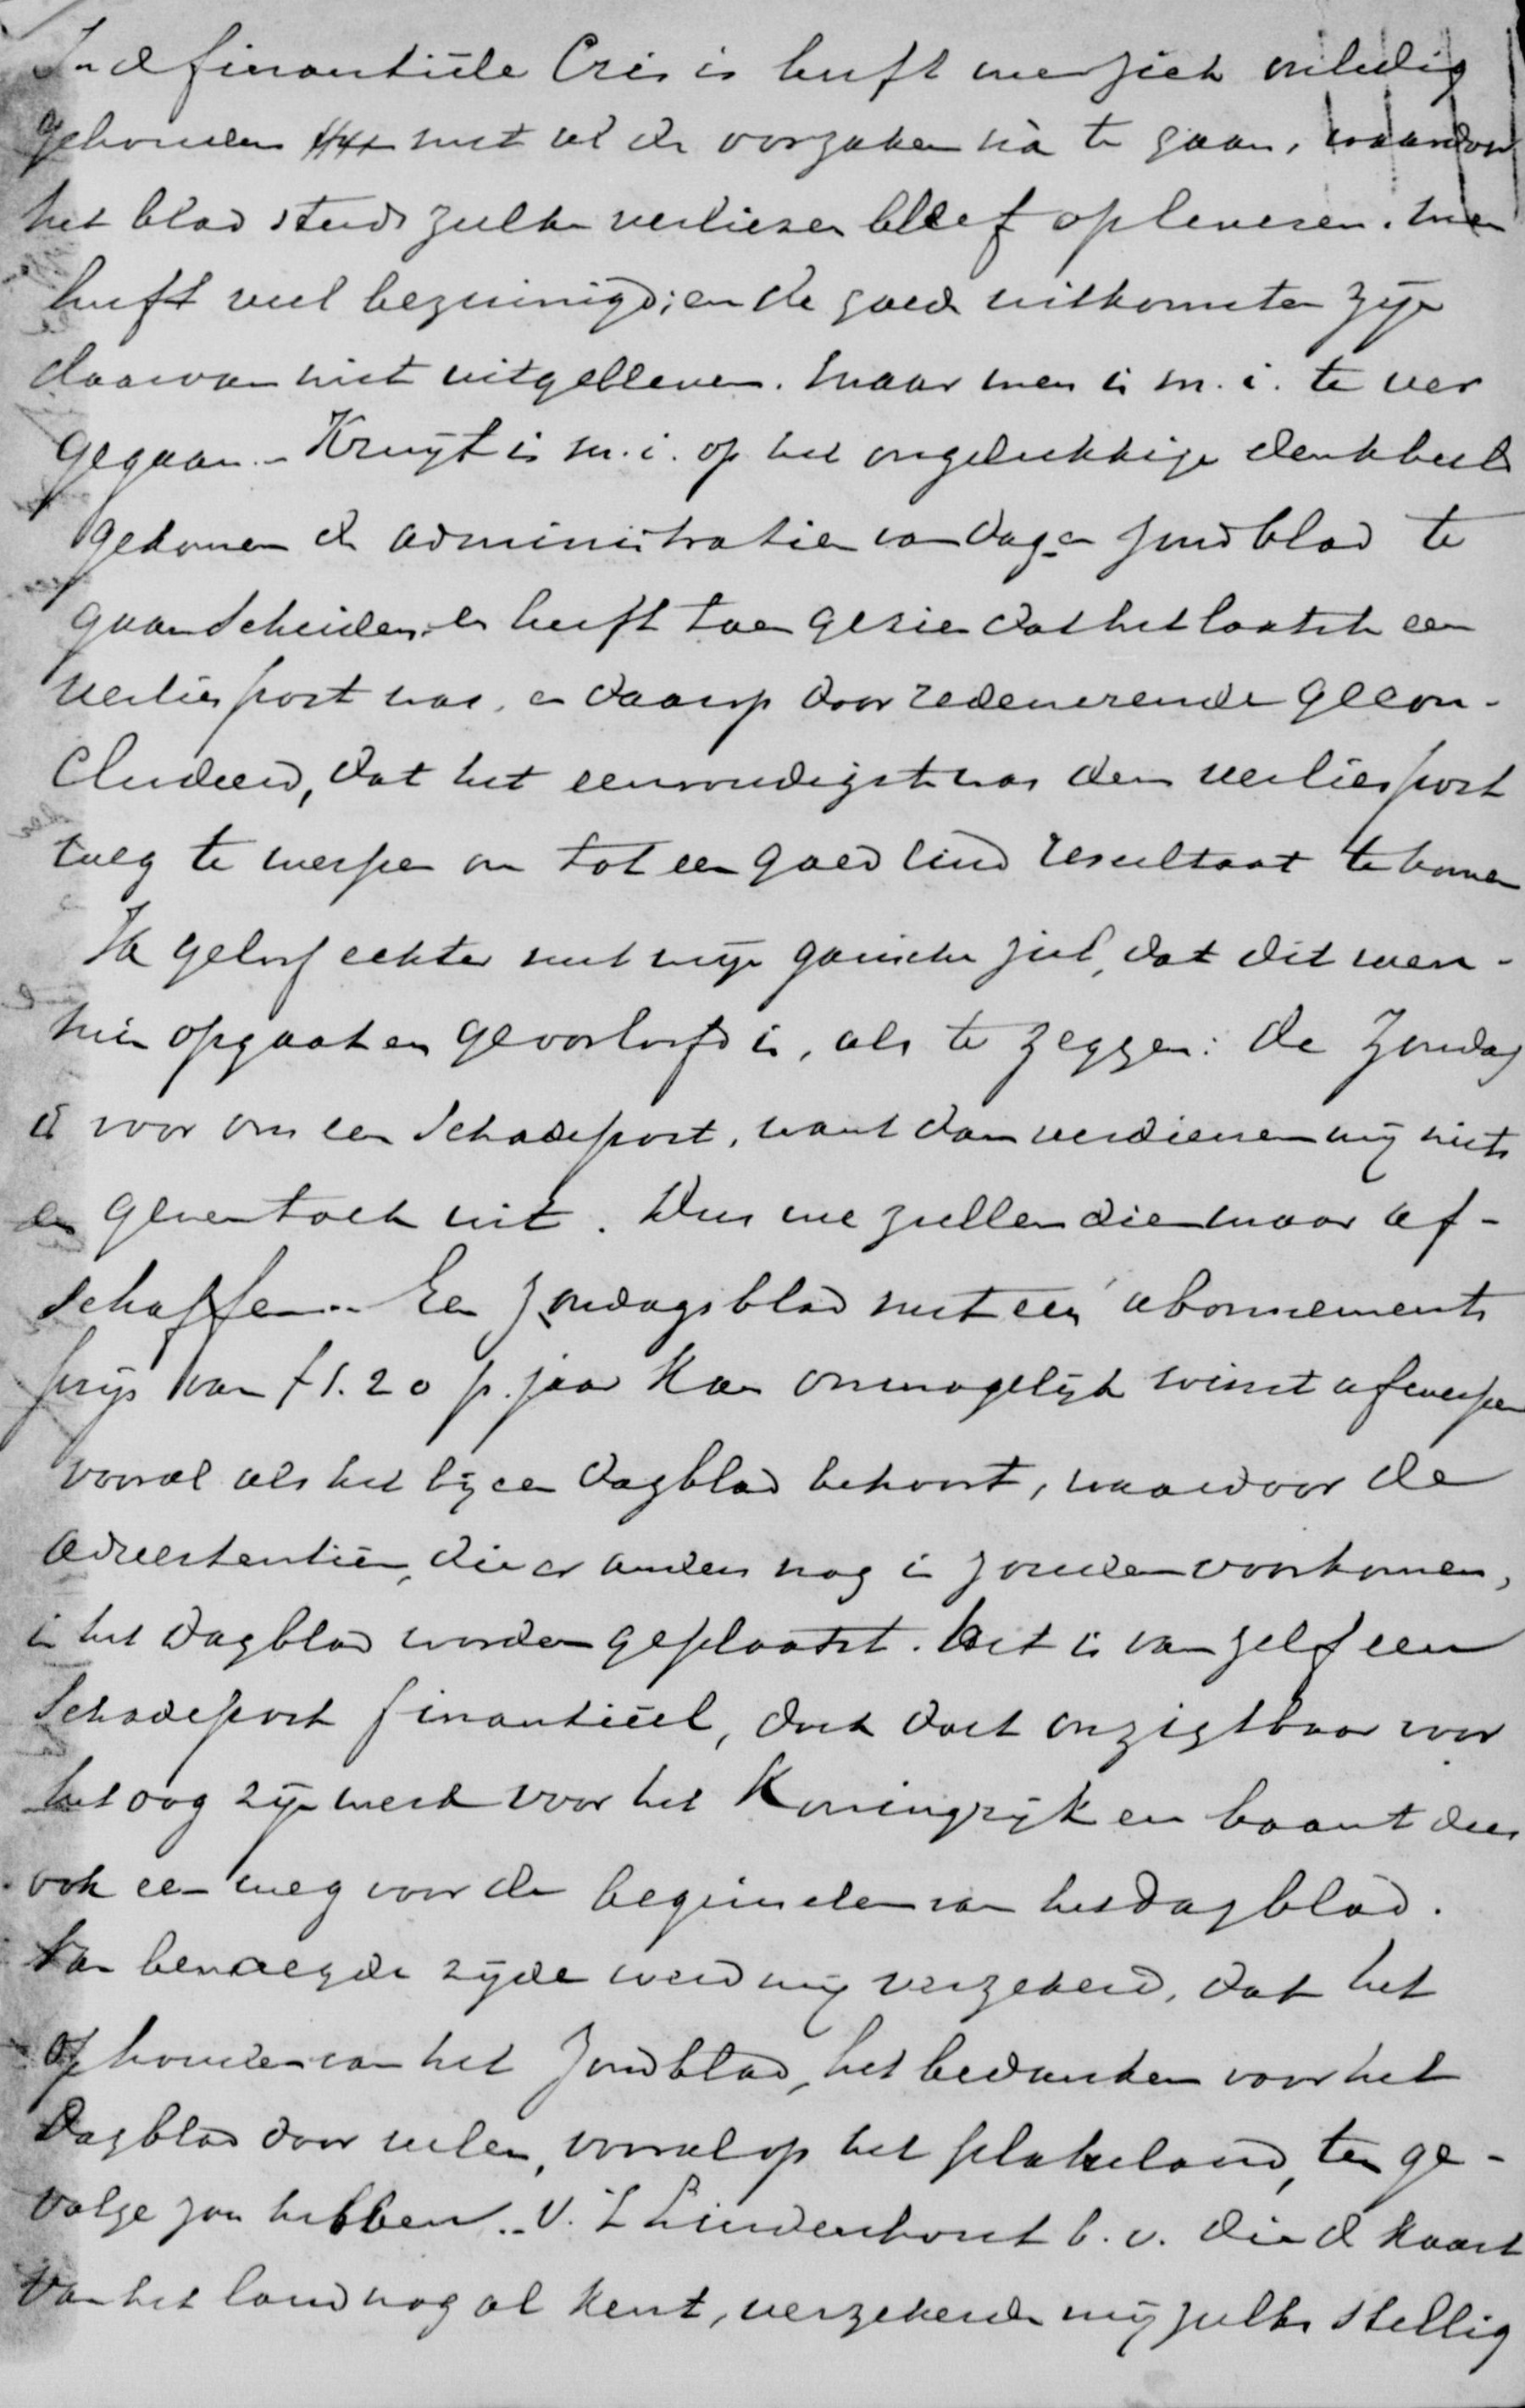 In de finantiëele Crisis heeft men zich onledig
gehouden met al de oorzaken nà te gaan, waardoor
het blad steeds zulke verliezen bleef opleveren. Men
heeft veel bezuinigd; en de goede uitkomsten zijn
daarvan niet uitgebleven. Maar men is m.i. te ver
gegaan. – Kruyt is m.i. op het ongelukkige denkbeeld
gekomen de administratien van dag- en zondblad te
gaan scheiden, en heeft toen gezien dat het laatste een
verliespost was, en daarop door redeneerende gecon-
cludeerd, dat het eenvoudigst was den verliespost
weg te werpen om tot een goed eind resultaat te komen
Ik geloof echter met mijn gansche ziel, dat dit even-
min opgaat en geoorloofd is, als te zeggen: de Zondag
is voor ons een schadepost, want dan verdienen wij niets
en geven toch uit. Dus we zullen dien maar af-
schaffen. – Een zondagsblad met een abonnements
prijs van f 1.20 p. jaar kan onmogelijk winst afwerpen
vooral als het bij een dagblad behoort, waardoor de
advertentiën, die er anders nog in zouden voorkomen,
in het dagblad worden geplaatst. Het is van zelf een
schadepost finantiëel, doch doet onzigtbaar voor
het oog zijn werk voor het Koningrijk en baant dus
ook een weg voor de beginselen van het dagblad.
Van bevoegde zijde werd mij verzekerd, dat het
ophouden van het Zondblad, het bedanken voor het
Dagblad door velen, vooral op het platteland, ten ge-
volge zou hebben. – V. 't Lindenhout b.v. die de kaart
van het land nog al kent, verzekerde mij zulks stellig